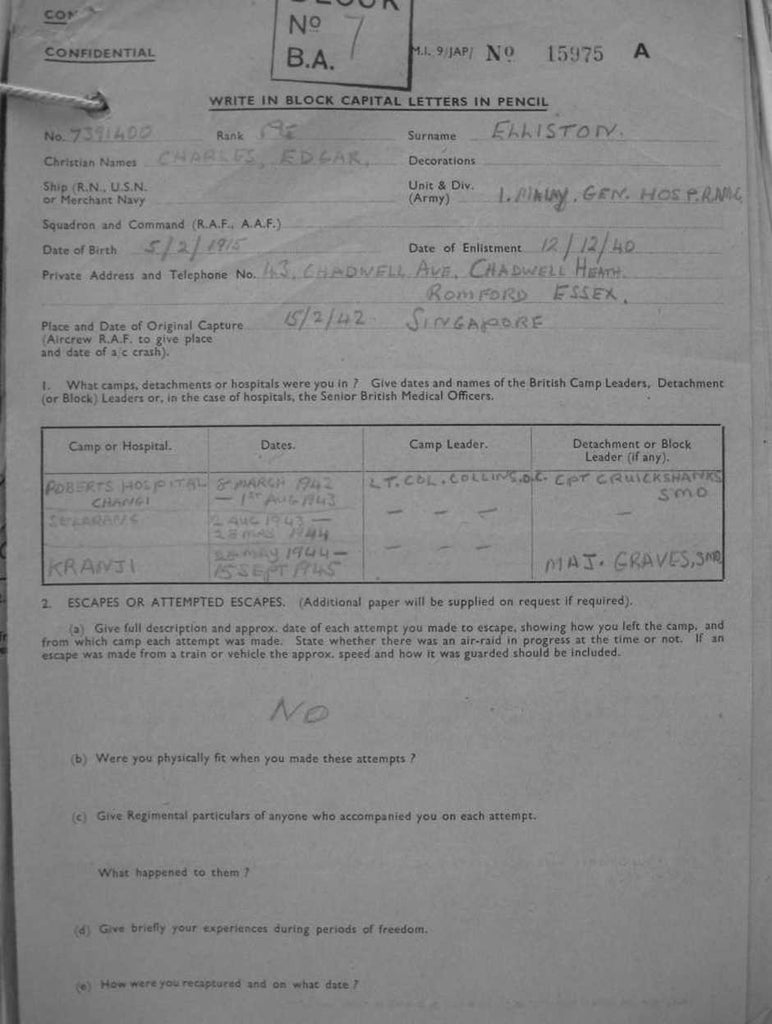 CONFIDENTIAL
No 7
B.A.
M.I. 9/JAP/ No 15975 A
WRITE IN BLOCK CAPITAL LETTERS IN PENCIL
No. 7391400 Rank Pte Surname ELLISTON.
Christian Names CHARLES, EDGAR. Decorations
Ship (R.N., U.S.N. or Merchant Navy
Unit & Div. (Army) 1. MALAY. GEN. HOSP. R.A.M.C.
Squadron and Command (R.A.F., A.A.F.)
Date of Birth 5/2/1915 Date of Enlistment 12/12/40
Private Address and Telephone No. 43, CHADWELL AVE, CHADWELL HEATH.
ROMFORD ESSEX,
Place and Date of Original Capture 15/2/42 SINGAPORE
(Aircrew R.A.F. to give place
and date of a/c crash).
1. What camps, detachments or hospitals were you in ? Give dates and names of the British Camp Leaders, Detachment
(or Block) Leaders or, in the case of hospitals, the Senior British Medical Officers.
Camp or Hospital. Dates. Camp Leader. Detachment or Block
Leader (if any).
ROBERTS HOSPITAL 8 MARCH 1942 LT. COL. COLLINS, O.C. CPT CRUICKSHANKS
CHANGI — 1ST AUG 1943 — — — SMO
SELARANG 2 AUG 1943 — —
28 MAY 1944 — — —
28 MAY 1944 —
KRANJI 15 SEPT 1945 MAJ. GRAVES, SMO
2. ESCAPES OR ATTEMPTED ESCAPES. (Additional paper will be supplied on request if required).
(a) Give full description and approx. date of each attempt you made to escape, showing how you left the camp, and
from which camp each attempt was made. State whether there was an air-raid in progress at the time or not. If an
escape was made from a train or vehicle the approx. speed and how it was guarded should be included.
NO
(b) Were you physically fit when you made these attempts ?
(c) Give Regimental particulars of anyone who accompanied you on each attempt.
What happened to them ?
(d) Give briefly your experiences during periods of freedom.
(e) How were you recaptured and on what date ?